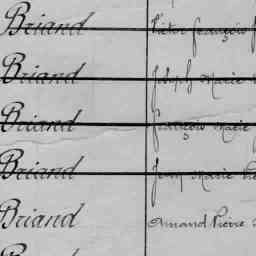 Briand Victor François
Briand Joseph Marie
Briand François Marie
Briand Jean Marie
Briand Amand Pierre